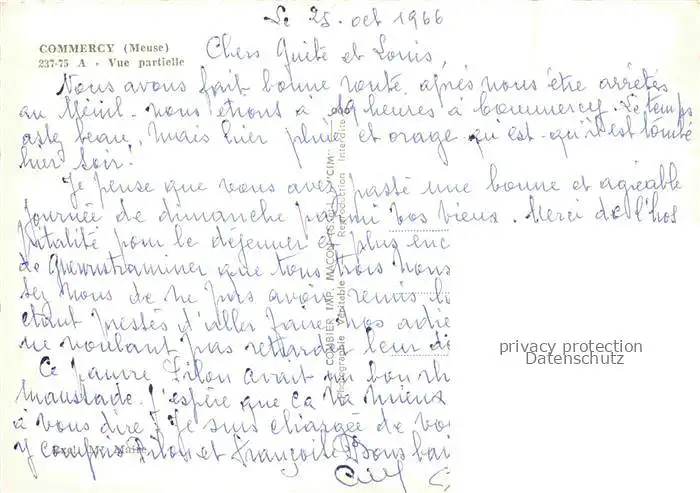 Le 25. oct 1966
COMMERCY (Meuse)
237-75 A - Vue partielle
Chers Guite et Louis,
Nous avons fait bonne route, après nous être arrêtés
au Ménil. nous étions à 19 heures à Commercy. Le temps
assez beau, mais hier pluie et orage qu'est-qu'il est tombé
hier soir!
Je pense que vous avez passé une bonne et agréable
journée de dimanche parmi vos vieux. Merci de l'hos
pitalité pour le déjeuner et plus enc
de Gewurstraminer que tous trois nous
sez nous de ne pas avoir remis l
étant pressés d'aller faire nos adie
ne voulant pas retarder leur di
Ce pauvre Filou avait un bon rh
maussade. J'espère que ça va mieux
à vous dire. Je suis chargée de vo
y compris Filou et Françoise. Bons bai
COMBIER IMP. MACON (S.-&-L.) "CIM"
Photographie Véritable - Reproduction Interdite
privacy protection
Datenschutz